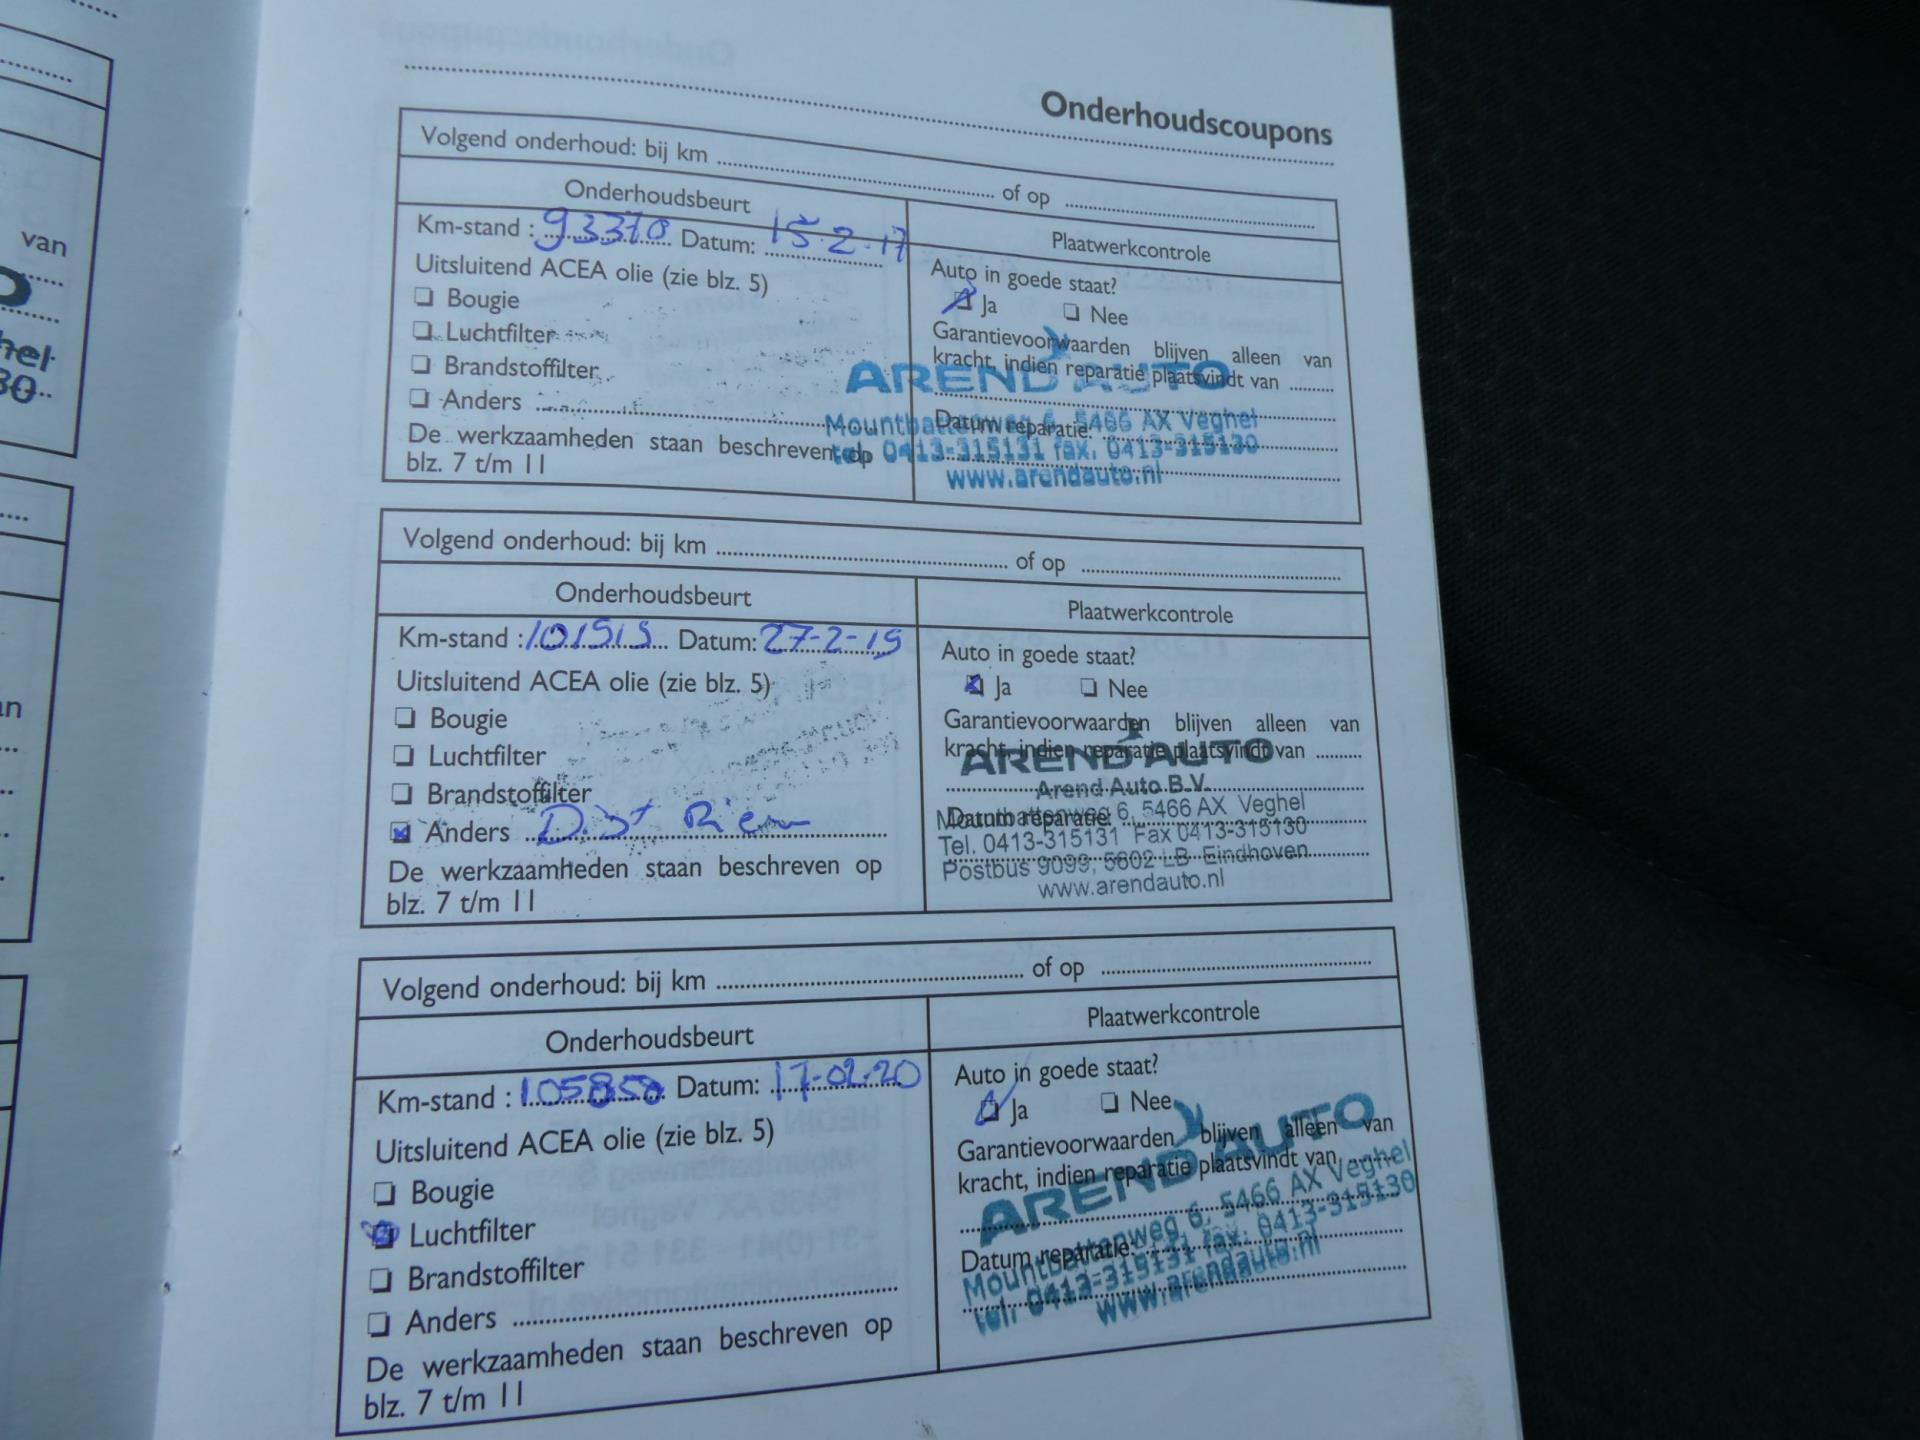 van
hel
30
Onderhoudscoupons
Volgend onderhoud: bij km ............ of op ............
Onderhoudsbeurt
Plaatwerkcontrole
Km-stand : 93370 Datum: 15-2-17
Auto in goede staat?
Uitsluitend ACEA olie (zie blz. 5)
Ja Nee
Bougie
Luchtfilter
Brandstoffilter
Anders ............
De werkzaamheden staan beschreven op
blz. 7 t/m 11
Garantievoorwaarden blijven alleen van
kracht, indien reparatie plaatsvindt van ........
Datum reparatie: ............
AREND AUTO
Mountbattenweg 6, 5466 AX Veghel
tel. 0413-315131 fax. 0413-315130
www.arendauto.nl
Volgend onderhoud: bij km ............ of op ............
Onderhoudsbeurt
Plaatwerkcontrole
Km-stand : 101515 Datum: 27-2-19
Auto in goede staat?
Uitsluitend ACEA olie (zie blz. 5)
Ja Nee
Bougie
Luchtfilter
Brandstoffilter
Anders D.st Riem
De werkzaamheden staan beschreven op
blz. 7 t/m 11
Garantievoorwaarden blijven alleen van
kracht, indien reparatie plaatsvindt van ........
Datum reparatie: ............
AREND AUTO
Arend Auto B.V.
Mountbattenweg 6, 5466 AX Veghel
Tel. 0413-315131 Fax 0413-315130
Postbus 9099, 5602 LB Eindhoven
www.arendauto.nl
Volgend onderhoud: bij km ............ of op ............
Onderhoudsbeurt
Plaatwerkcontrole
Km-stand : 105850 Datum: 17-02-20
Auto in goede staat?
Uitsluitend ACEA olie (zie blz. 5)
Ja Nee
Bougie
Luchtfilter
Brandstoffilter
Anders ............
De werkzaamheden staan beschreven op
blz. 7 t/m 11
Garantievoorwaarden blijven alleen van
kracht, indien reparatie plaatsvindt van ........
Datum reparatie: ............
AREND AUTO
Mountbattenweg 6, 5466 AX Veghel
tel. 0413-315131 fax. 0413-315130
www.arendauto.nl